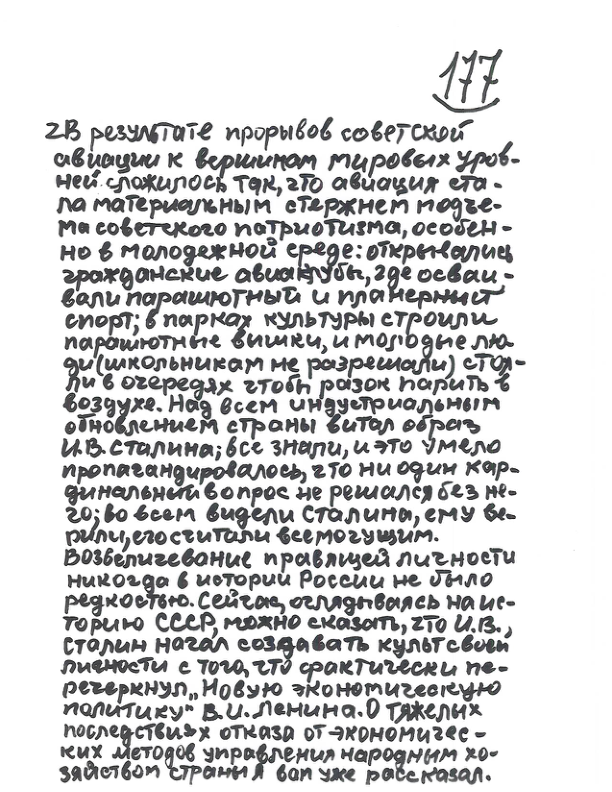 177
2В результате прорывов советской
авиации к вершинам мировых уров-
ней сложилось так, что авиация ста-
ла материальным стержнем подъе-
ма советского патриотизма, особен-
но в молодежной среде: открывались
гражданские авиаклубы, где осваи-
вали парашютный и планерный
спорт; в парках культуры строили
парашютные вышки, и молодые лю-
ди (школьникам не разрешали) стоя-
ли в очередях чтобы разок парить в
воздухе. Над всем индустриальным
обновлением страны витал образ
И.В. Сталина; все знали, и это умело
пропагандировалось, что ни один кар-
динальный вопрос не решался без не-
го; во всем видели Сталина, ему ве-
рили, его считали всемогущим.
Возвеличевание правящей личности
никогда в истории России не было
редкостью. Сейчас, оглядываясь на ис-
торию СССР, можно сказать, что И.В.,
Сталин начал создавать культ своей
личности с того, что фактически пе-
речеркнул „Новую экономическую
политику" В.И. Ленина. О тяжелых
последствиях отказа от экономичес-
ких методов управления народным хо-
зяйством страны я вам уже рассказал.